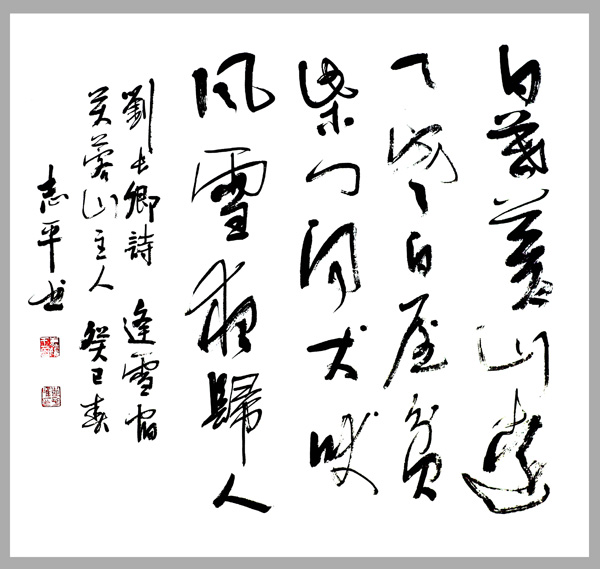 日暮蒼山遠
天寒白屋貧
柴門聞犬吠
風雪夜歸人
劉長卿詩 逢雪宿
芙蓉山主人 癸巳春
志平书